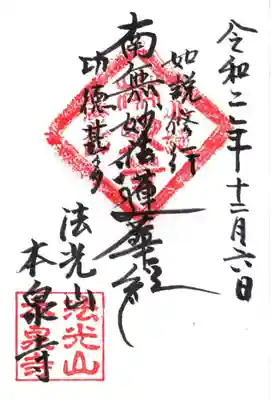 令和二年十二月六日
如説修行
南無妙法蓮華経
功徳甚多
法光山
本泉寺
法光山
本泉寺